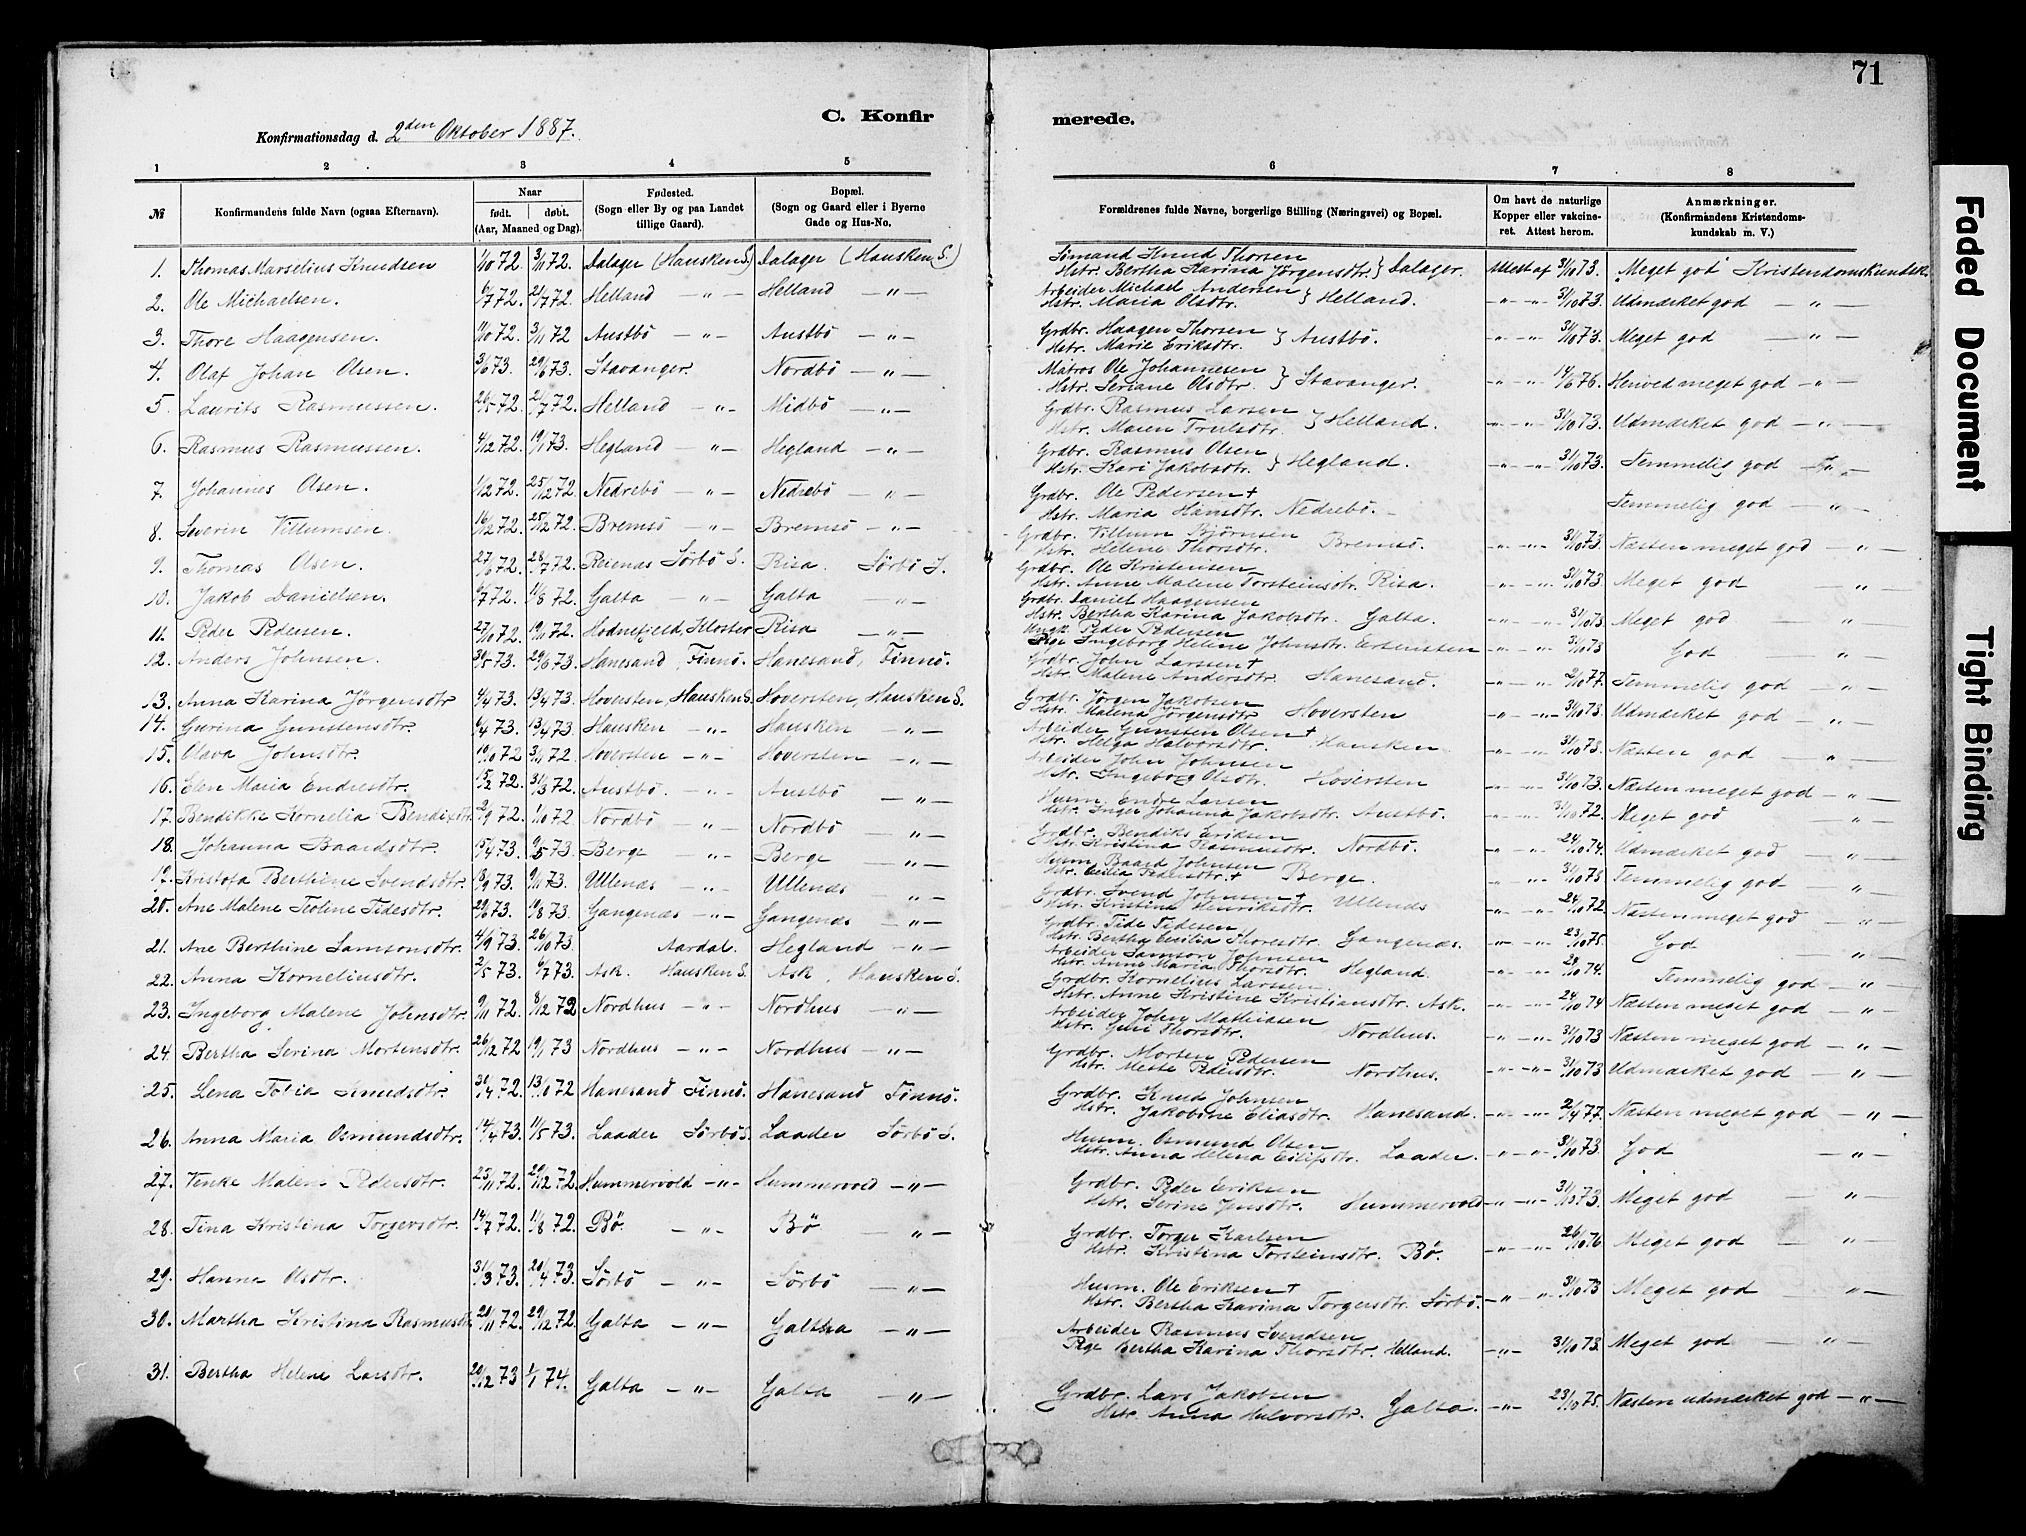 71
C. Konfirmerede.
Konfirmationsdag d. 2den Oktober 1887.
1 2 3 4 5 6 7 8
№ Konfirmandens fulde Navn (ogsaa Efternavn). Naar født. døbt. (Aar, Maaned og Dag). Fødested. (Sogn eller By og paa Landet tillige Gaard). Bopæl. (Sogn og Gaard eller i Byerne Gade og Hus-No. Forældrenes fulde Navne, borgerlige Stilling (Næringsvei) og Bopæl. Om havt de naturlige Kopper eller vakcineret. Attest herom. Anmærkninger. (Konfirmandens Kristendomskundskab m. V.)
1. Thomas Marselius Knudsen 1/10 72. 3/11 72. Dalager (Hausken S.) Dalager (Hausken S.) Simand Knud Thorsen Hstr. Bertha Karina Jörgensdtr. } Dalager. Attest af 31/10 73. Meget god Kristendomskundsk.
2. Ole Michaelsen. 6/7 72. 21/7 72. Helland — „ — Helland — „ — Arbeider Michael Andersen Hstr. Maria Olsdtr. } Helland. — „ — „ 31/10 73. Udmærket god — „ —
3. Thore Haagensen. 11/10 72. 3/11 72 Austbö — „ — Austbö — „ — Grdbr. Haagen Thorsen Hstr. Marie Eriksdtr. } Austbö. — „ — „ 31/10 73. Meget god — „ —
4. Olaf Johan Olsen. 3/6 73. 29/6 73. Stavanger. Nordbö — „ — Matros Ole Johannesen Hstr. Seriane Olsdtr. } Stavanger. — „ — „ 14/6 76. Henved meget god — „ —
5. Laurits Rasmussen. 26/5 72. 21/7 72. Helland — „ — Midbö — „ — Grdbr. Rasmus Larsen Hstr. Maren Trulsdtr. } Helland. — „ — „ 31/10 73. Udmærket god — „ —
6. Rasmus Rasmussen. 4/12 72. 19/1 73. Hegland — „ — Hegland — „ — Grdbr. Rasmus Olsen Hstr. Kari Jakobsdtr. } Hegland. — „ — „ 31/10 73. Temmelig god — „ —
7. Johannes Olsen. 1/12 72. 25/12 72. Nedrebö — „ — Nedrebö — „ — Grdbr. Ole Pedersen † Hstr. Maria Hansdtr. Nedrebö. Temmelig god — „ —
8. Severin Villumsen. 16/12 72. 25/12 72. Bremsö — „ — Bremsö — „ — Grdbr. Villum Bjørnsen Hstr. Helene Thorsdtr. Bremsö. — „ — „ 31/10 73. Næsten meget god — „ —
9. Thomas Olsen. 27/6 72. 28/7 72. Reienas Sörbö S. Risa. Sörbö S. Grdbr. Ole Kristensen Hstr. Anne Malene Torsteinsdtr. Risa. — „ — „ 31/10 73. Meget god — „ —
10. Jakob Danielsen. 6/7 72. 11/8 72. Galta — „ — Galta — „ — Grdbr. Daniel Haagensen Hstr. Bertha Karina Jakobsdtr. Galta. — „ — „ 31/10 73. Meget god — „ —
11. Peder Pedersen. 27/10 72. 19/11 72. Hodnefjeld, Kloster Risa — „ — Ungk. Peder Pedersen Pige Ingeborg Helene Johnsdtr. — „ — „ 31/10 73 God — „ —
12. Anders Johnsen. 30/5 73. 29/6 73. Hanesand, Finnö. Hanesand, Finnö. Grdbr. John Larssen † Hstr. Malene Andersdtr. Hanesand. — „ — „ 2/10 77. Temmelig god — „ —
13. Anna Karina Jörgensdtr 4/4 73. 13/4 73. Hoversten, Hausken S. Hoversten, Hausken S. Grdbr. Jörgen Jakobsen Hstr. Malena Jörgensdtr Hoversten — „ — „ 31/10 73. Udmærket god — „ —
14. Gurina Gunstensdtr. 6/4 73. 13/4 73. Hausken — „ — Hausken — „ — Arbeider Gunsten Olsen † Hstr. Helga Halvorsdtr. Hausken — „ — „ 31/10 73. Næsten god — „ —
15. Olava Johnsdtr. 10/10 72 3/11 72. Hoversten — „ — Hoversten — „ — Arbeider John Johnsen Hstr. Ingeborg Olsdtr. Hoversten — „ — „ 31/10 73. Næsten meget god — „ —
16. Elen Maria Endresdtr. 15/2 72. 31/3 72. Austbö. — „ — Austbö — „ — Husm. Endre Larsen Hstr. Inger Johanna Jakobsdtr. Austbö. — „ — „ 31/10 72. Meget god — „ —
17. Bendikke Kornelia Bendixdtr. 2/9 72. 1/10 72 Nordbö — „ — Nordbö — „ — Grdbr. Bendiks Eriksen Hstr. Kristina Rasmusdtr. Nordbö. — „ — „ 24/10 74. Udmærket god — „ —
18. Johanna Baardsdtr. 15/4 73. 9/5 73. Berge — „ — Berge — „ — Husm. Baard Johnsen Hstr. Cecilia Pedersdtr. † Berge. — „ — „ 31/10 73 Temmelig god — „ —
19. Kristofa Berthine Svendsdtr. 18/9 73. 9/11 73. Ullenæs — „ — Ullenæs — „ — Grdbr. Svend Johnsen † Hstr. Kristina Henriksdtr. Ullenæs — „ — „ 24/10 72. Næsten meget god — „ —
20. Ane Malene Teoline Tidesdtr. 29/6 73. 10/8 73. Gangenæs — „ — Gangenæs — „ — Grdbr. Tide Tidesen Hstr. Bertha Cecilia Thoresdtr. Gangenæs. — „ — „ 23/10 75. God — „ —
21. Ane Berthine Samsonsdtr. 4/9 73. 26/10 73. Aardal. Hegland — „ — Arbeider Samson Johnsen Hstr. Anne Maria Thorsdtr. Hegland. — „ — „ 24/10 74. Temmelig god — „ —
22. Anna Korneliusdtr. 2/5 73. 6/7 73. Ask. Hausken S. Ask, Hausken S. Grdbr. Kornelius Larssen Hstr. Anne Kristine Kristiansdtr. Ask. — „ — „ 24/10 74 Næsten meget god — „ —
23. Ingeborg Malene Johnsdtr. 9/11 72. 8/12 72 Nordhus — „ — Nordhus — „ — Arbeider John Mathiassen Hstr. Guri Thorsdtr. Nordhus. — „ — „ 31/10 73 Næsten meget god — „ —
24. Bertha Serina Mortensdtr. 26/12 72 19/1 73 Nordhus — „ — Nordhus — „ — Grdbr. Morten Pedersen Hstr. Mette Pedersdtr. Nordhus. — „ — „ 31/10 73 Udmærket god — „ —
25. Lena Tobia Knudsdtr. 30/4 72. 13/10 72 Hanesand Finnö. Hanesand Finnö. Grdbr. Knud Johnsen Hstr. Jakobine Eliasdtr. Hanesand. — „ — „ 2/4 77. Næsten meget god — „ —
26. Anna Maria Osmundsdtr. 14/4 73. 11/5 73. Laader Sörbö S. Laader Sörbö S. Husm. Osmund Olsen Hstr. Anna Helena Eilifsdtr. Laader. — „ — „ 31/10 73. God — „ —
27. Venke Malene Pedersdtr. 25/11 72. 29/12 72. Hummervold — „ — Hummervold — „ — Grdbr. Peder Eriksen Hstr. Serine Jensdtr. Hummervold — „ — „ 31/10 73. Meget god — „ —
28. Tina Kristina Torgersdtr. 14/7 72. 11/8 72. Bö. — „ — Bö — „ — Grdbr. Torger Karlsen Hstr. Kristina Torsteinsdtr. Bö. — „ — „ 26/10 76 Meget god — „ —
29. Hanne Olsdtr. 31/3 73. 20/4 73. Sörbö — „ — Sörbö — „ — Husm. Ole Eriksen † Hstr. Bertha Karina Torgersdtr. Sörbö. — „ — „ 31/10 73 Meget god — „ —
30. Martha Kristina Rasmusdtr. 20/11 72. 29/12 72. Galta — „ — Galtha — „ — Arbeider Rasmus Svendsen Pige Bertha Karina Thorsdtr. Helland. — „ — 31/10 73. Meget god — „ —
31. Bertha Helene Larsdtr. 20/12 73 1/1 74. Galta — „ — Galta — „ — Grdbr. Lars Jakobsen Hstr. Anna Halvorsdtr. Galta. — „ — 23/10 75. Næsten udmærket god — „ —
Faded Document
Tight Binding